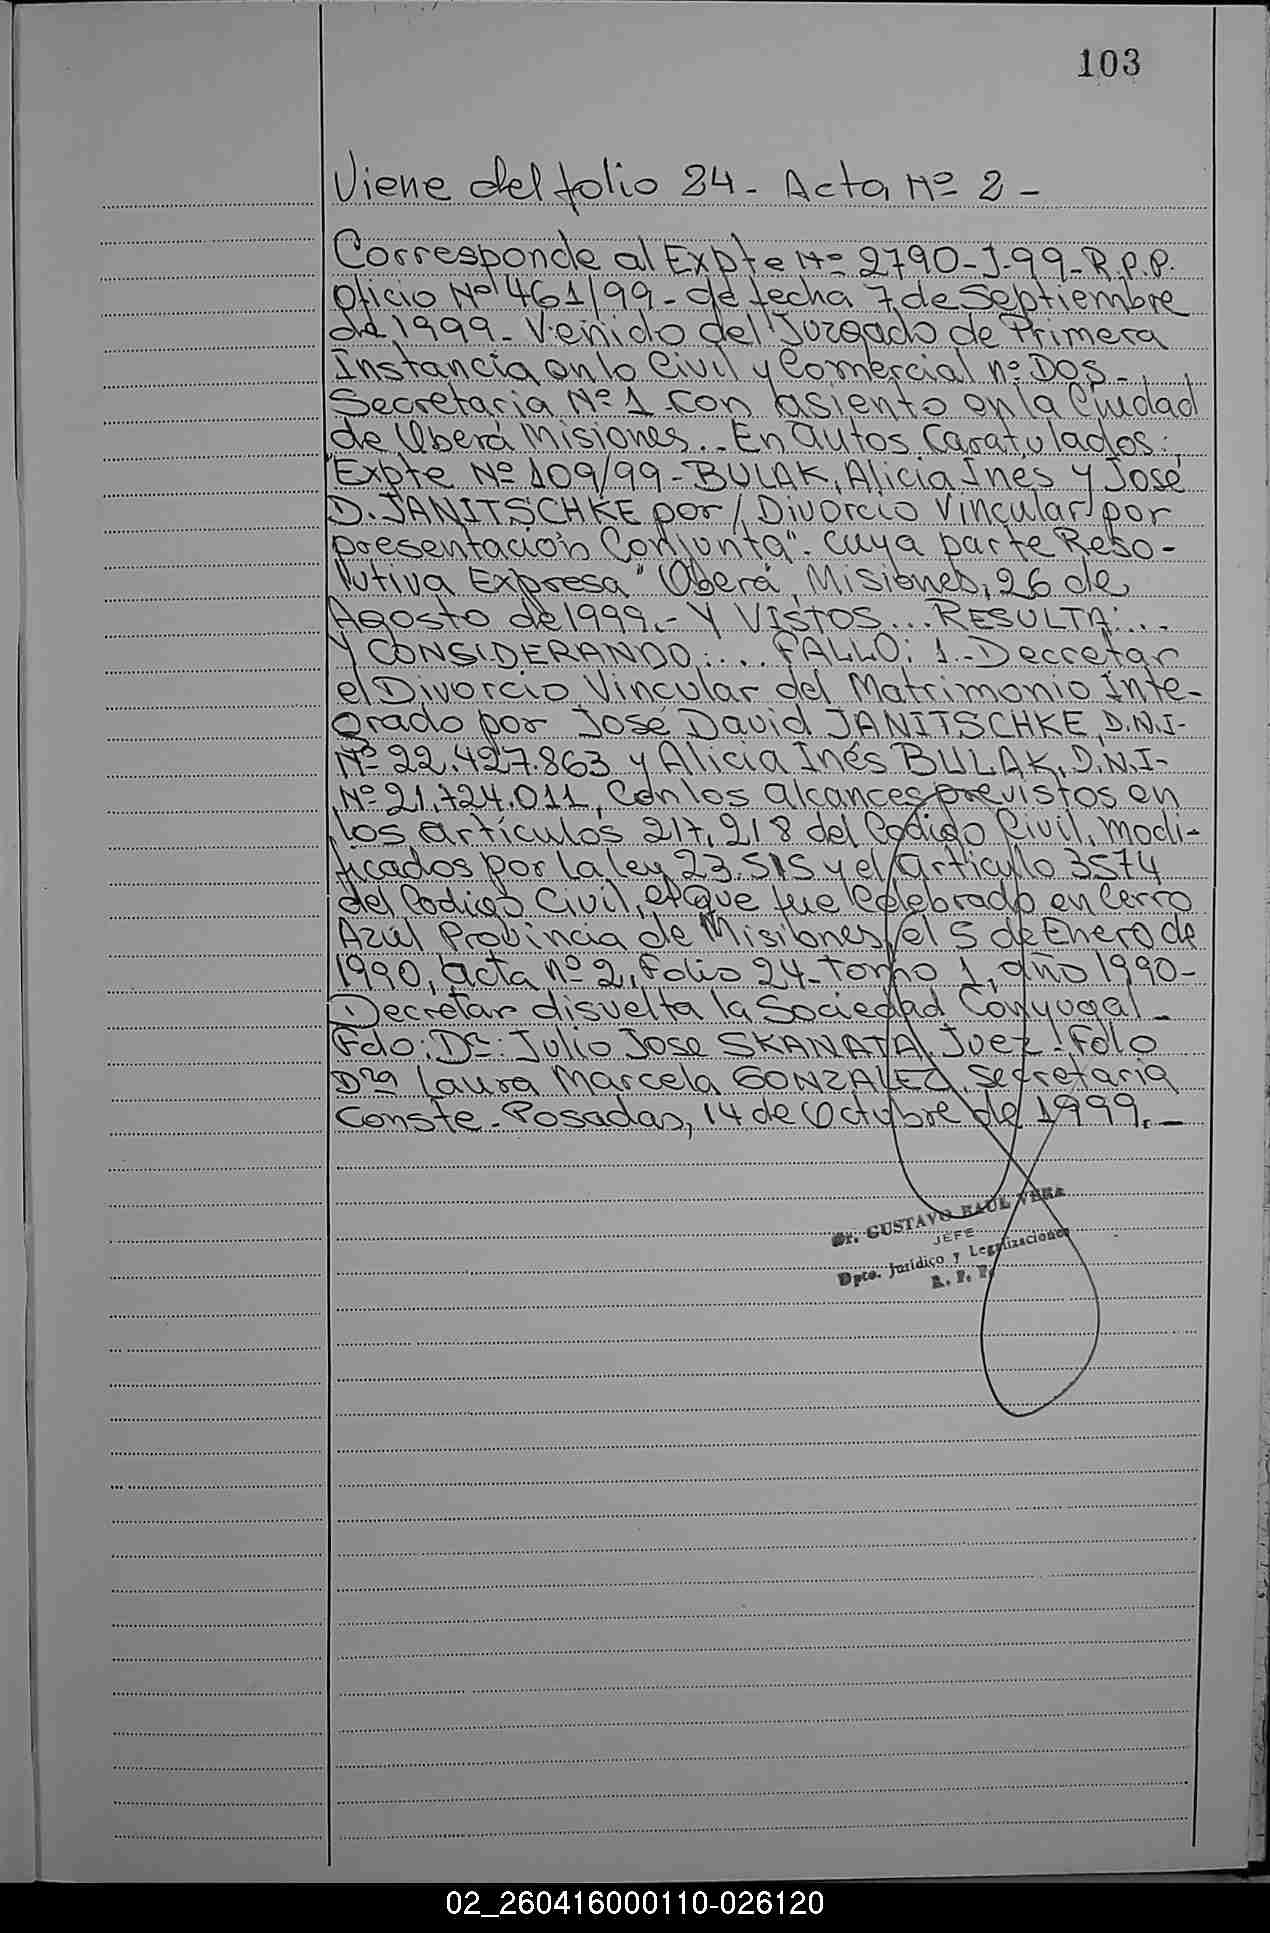 103
Viene del folio 24 - Acta Nº 2 -
Corresponde al Expte Nº 2790-J-99-R.P.P.
Oficio Nº 461/99 - de fecha 7 de Septiembre
de 1999 - Venido del Juzgado de Primera
Instancia en lo Civil y Comercial nº DOS -
Secretaria Nº 1 - Con asiento en la Ciudad
de Oberá Misiones.. En autos Caratulados:
"Expte Nº 109/99 - BULAK, Alicia Ines y José
D. JANITSCHKE por / Divorcio Vincular por
presentación Conjunta". cuya parte Reso-
lutiva Expresa " Oberá, Misiones, 26 de
Agosto de 1999.- Y VISTOS... RESULTA:...
Y CONSIDERANDO:... FALLO: 1.- Decretar
el Divorcio Vincular del Matrimonio Inte-
grado por José David JANITSCHKE, D.N.I-
Nº 22.427.863 y Alicia Inés BULAK, D.N.I-
Nº 21.724.011, Con los alcances previstos en
los artículos 217, 218 del Codigo Civil, modi-
ficados por la ley 23.515 y el articulo 3574
del Codigo Civil, el que fue Celebrado en Cerro
Azúl Provincia de Misiones, el 5 de Enero de
1990, acta nº 2, Folio 24 - Tomo 1, año 1990 -
Decretar disuelta la Sociedad Conyugal -
Fdo: Dr: Julio Jose SKANATA Juez - Fdo
Dra Laura Marcela GONZALEZ, Secretaria
Conste - Posadas, 14 de Octubre de 1999.-
Dr. GUSTAVO RAUL VERA
JEFE
Dpto. Jurídico y Legalizaciones
R. P. P.
02_260416000110-026120